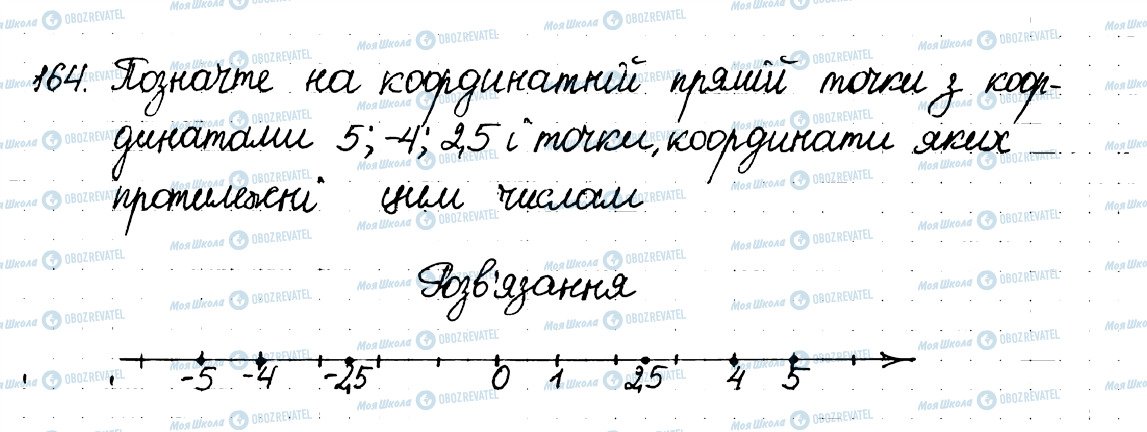 164. Позначте на координатній прямій точки з коор-
динатами 5; -4; 2,5 і точки, координати яких
протилежні цим числам
Розв'язання
-5 -4 -2,5 0 1 2,5 4 5